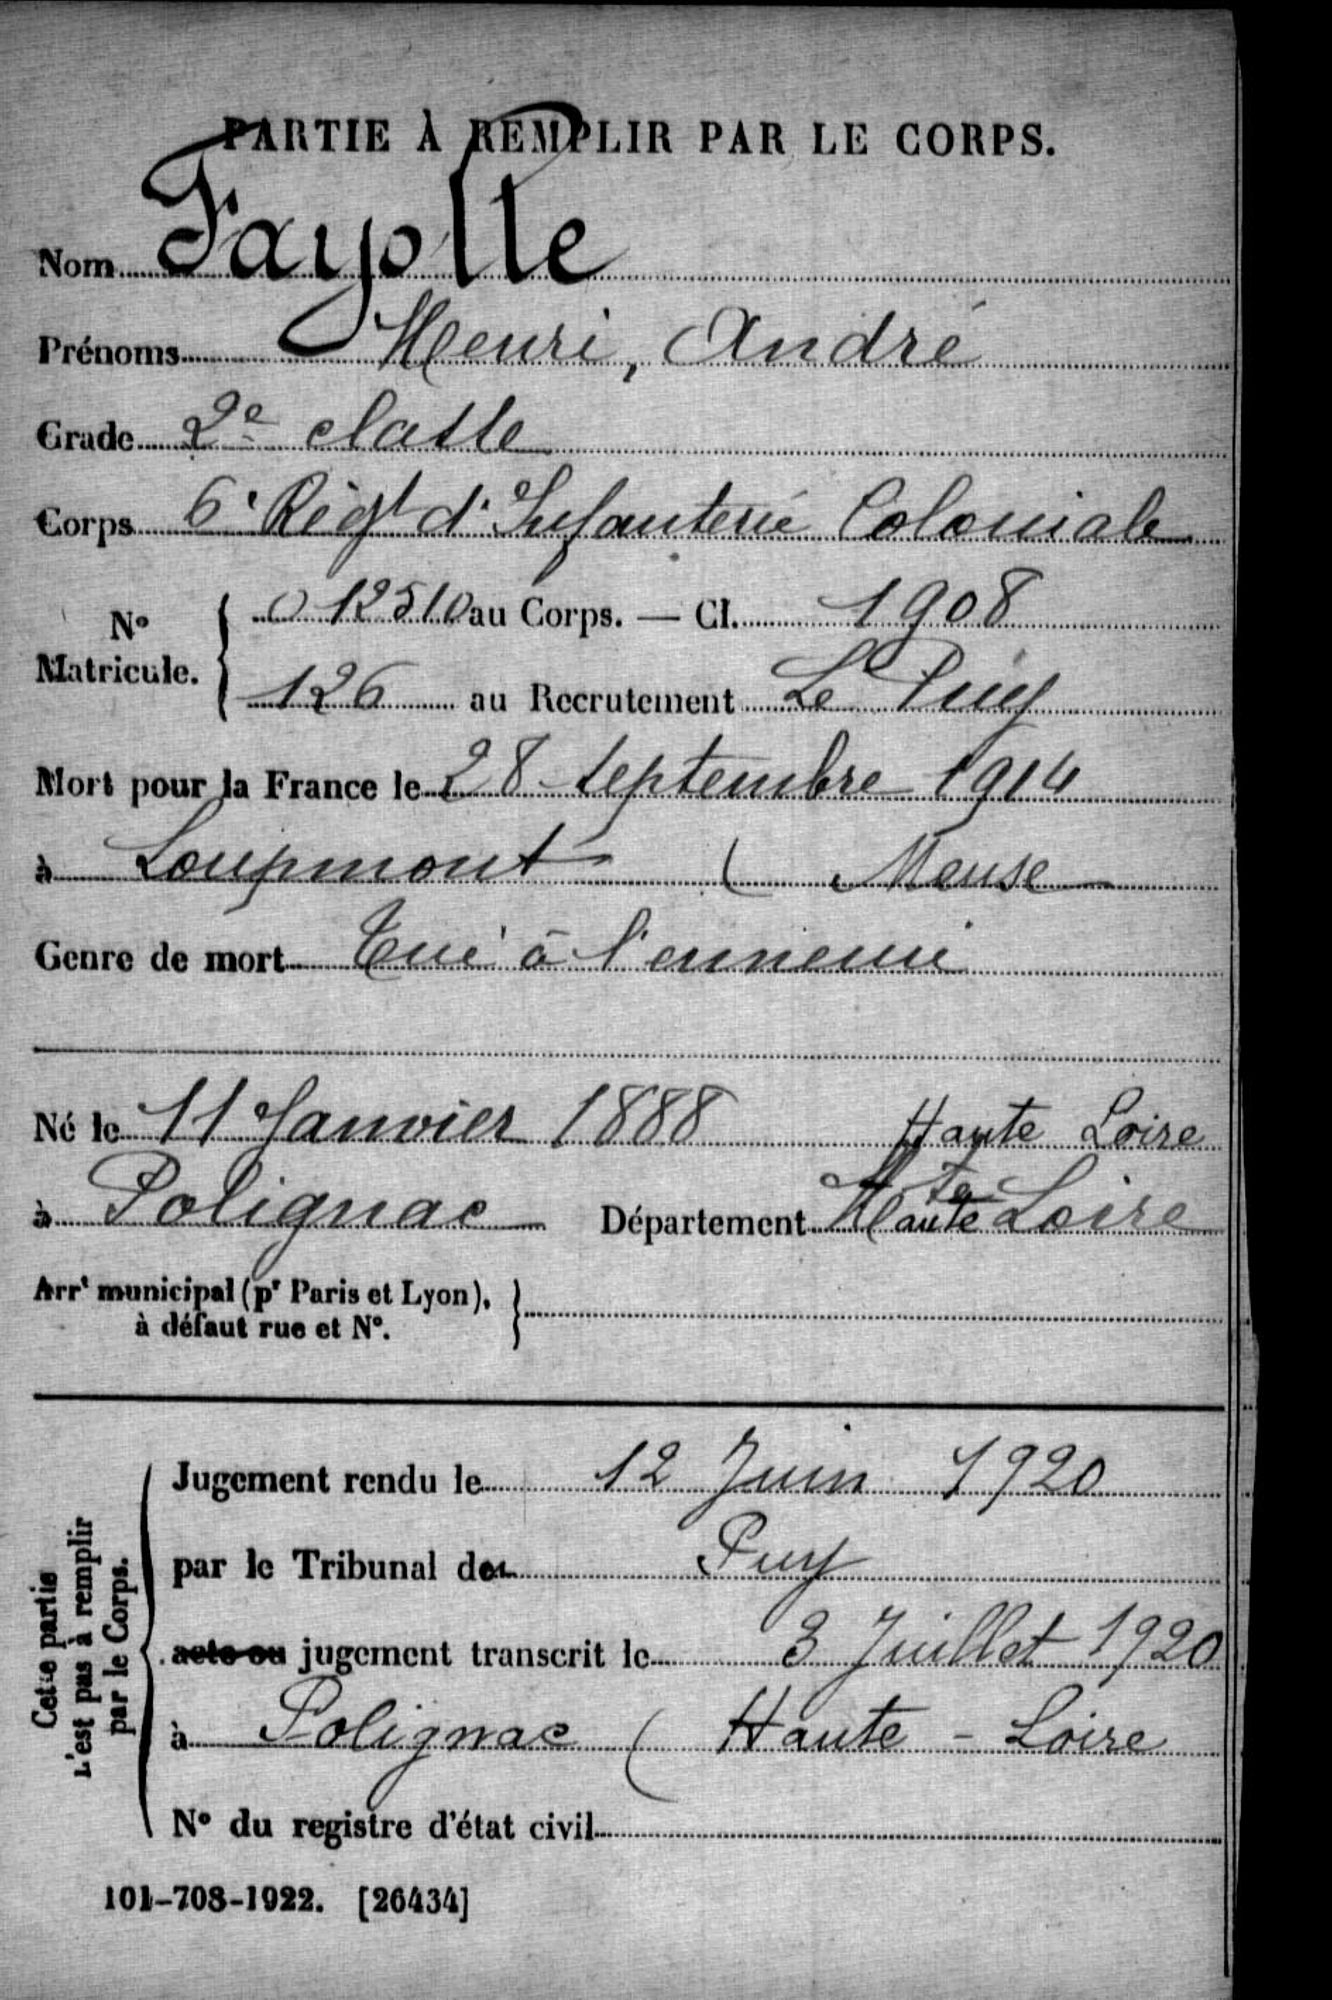 PARTIE À REMPLIR PAR LE CORPS.
Nom Fayolle
Prénoms Henri, André
Grade 2e classe
Corps 6e Régt d'Infanterie Coloniale
No Matricule. { 012510 au Corps. — Cl. 1908
126 au Recrutement Le Puy
Mort pour la France le 28 septembre 1914
à Loupmont ( Meuse
Genre de mort Tué à l'ennemi
Né le 11 Janvier 1888 Haute Loire
à Polignac Département Haute Loire
Arrt municipal (pr Paris et Lyon), }
à défaut rue et No.
Cette partie
n'est pas à remplir
par le Corps.
Jugement rendu le 12 Juin 1920
par le Tribunal du Puy
acte ou jugement transcrit le 3 Juillet 1920
à Polignac ( Haute - Loire
No du registre d'état civil
101-708-1922. [26434]